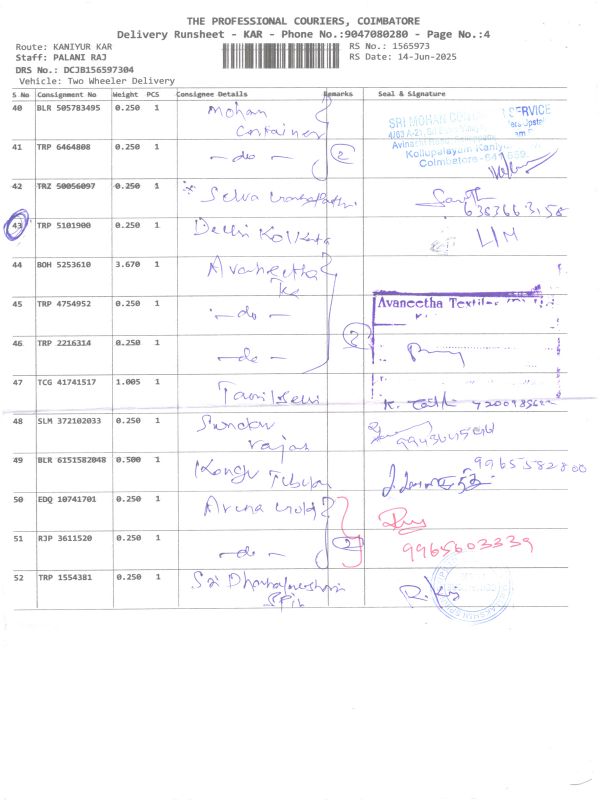 THE PROFESSIONAL COURIERS, COIMBATORE
Delivery Runsheet - KAR - Phone No.:9047080280 - Page No.:4
Route: KANIYUR KAR RS No.: 1565973
Staff: PALANI RAJ RS Date: 14-Jun-2025
DRS No.: DCJB156597304
Vehicle: Two Wheeler Delivery
S No Consignment No Weight PCS Consignee Details Remarks Seal & Signature
40 BLR 505783495 0.250 1 Mohan
Container
SRI MOHAN SERVICE
41 TRP 6464808 0.250 1 -do- 2
Kollupalayam
Coimbatore-641
42 TRZ 50056097 0.250 1 Selva
6383663158
43 TRP 5101900 0.250 1 Delhi Kolkata
44 BOH 5253610 3.670 1 Avaneetha
Tex
45 TRP 4754952 0.250 1 -do- Avaneetha Textiles
46 TRP 2216314 0.250 1 -do- 2
47 TCG 41741517 1.005 1 Tamil Selvi
48 SLM 372102033 0.250 1 Sundar
rajan
49 BLR 6151582048 0.500 1 Kongu 9965582800
50 EDQ 10741701 0.250 1 Aruna
51 RJP 3611520 0.250 1 -do- 2 9965603339
52 TRP 1554381 0.250 1 Sri